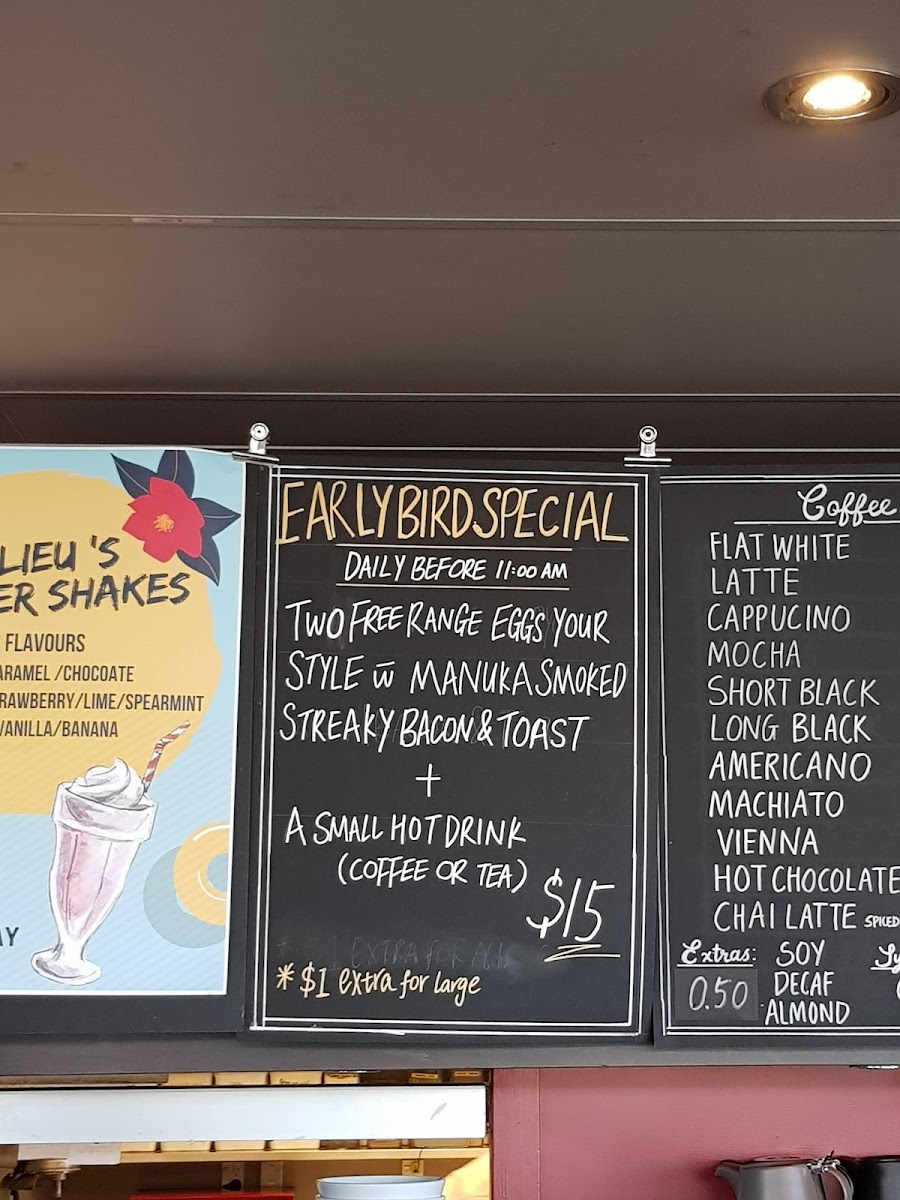 LIEU'S
ER SHAKES
FLAVOURS
ARAMEL /CHOCOATE
RAWBERRY/LIME/SPEARMINT
VANILLA/BANANA
AY
EARLY BIRD SPECIAL
DAILY BEFORE 11:00 AM
TWO FREE RANGE EGGS YOUR
STYLE w̄ MANUKA SMOKED
STREAKY BACON & TOAST
+
A SMALL HOT DRINK
(COFFEE OR TEA)
$15
* $1 extra for large
Coffee
FLAT WHITE
LATTE
CAPPUCINO
MOCHA
SHORT BLACK
LONG BLACK
AMERICANO
MACHIATO
VIENNA
HOT CHOCOLATE
CHAI LATTE SPICED
Extras: SOY
0.50 DECAF
ALMOND
Sy